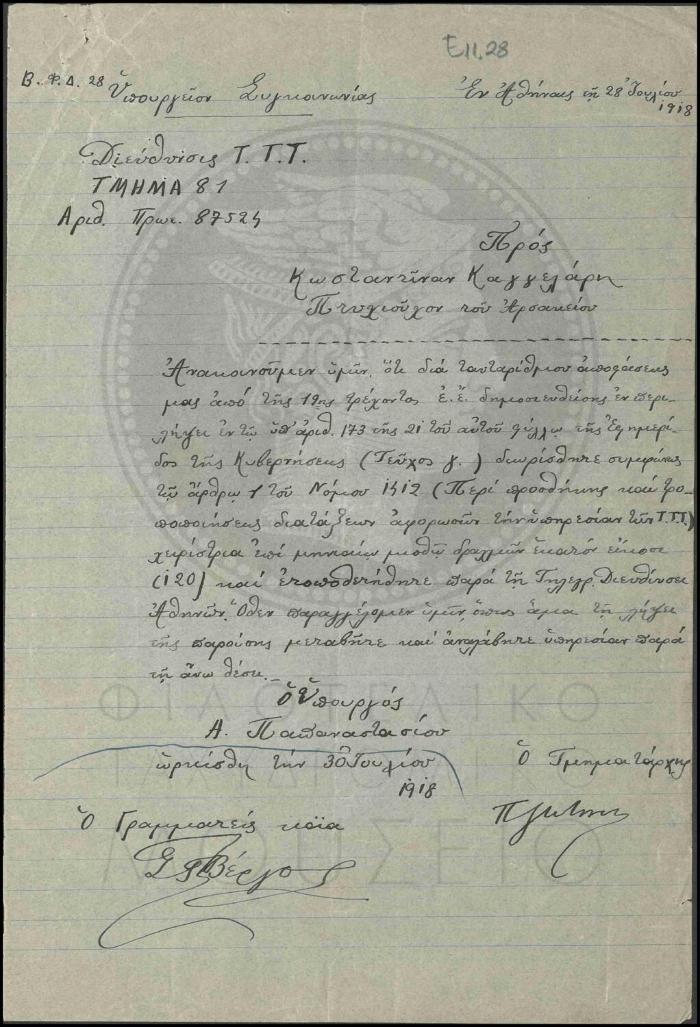 Ε11.28
Β. Φ. Δ. 28 Ὑπουργεῖον Συγκοινωνίας Ἐν Ἀθήναις τῇ 28 Ἰουλίου
1918
Διεύθυνσις Τ. Τ. Τ.
ΤΜΗΜΑ 81
Αριθ. Πρωτ. 87524
Πρός
Κωσταντῖναν Καγγελάρη
Πτυχιοῦχον τοῦ Ἀρσακείου
Ἀνακοινοῦμεν ὑμῖν, ὅτι διά ταυταρίθμου ἀποφάσεως
μας ἀπό τῆς 19ης τρέχοντος ἐ. ἔ. δημοσιευθείσης ἐν περι-
λήψει ἐν τῷ ὑπ' ἀριθ. 173 τῆς 21 τοῦ αὐτοῦ φύλλῳ τῆς Ἐφημερί-
δος τῆς Κυβερνήσεως (Τεῦχος γ.) διωρίσθητε συμφώνως
τῷ ἄρθρῳ 1 τοῦ Νόμου 1412 (Περί προσθήκης καί τρο-
ποποιήσεως διατάξεων ἀφορωσῶν τήν ὑπηρεσίαν τῶν Τ.Τ.Τ.)
χειρίστρια ἐπί μηνιαίῳ μισθῷ δραχμῶν ἑκατόν εἴκοσι
(120) καί ἐτοποθετήθητε παρά τῇ Τηλεγρ. Διευθύνσει
Ἀθηνῶν. Ὅθεν παραγγέλομεν ὑμῖν, ὅπως ἅμα τῇ λήψει
τῆς παρούσης μεταβῆτε καί ἀναλάβητε ὑπηρεσίαν παρά
τῇ ἄνω θέσει._
Ὁ Ὑπουργός
Α. Παπαναστασίου
ὡρκίσθη τήν 30 Ἰουλίου
1918
Ὁ Τμηματάρχης
Ὁ Γραμματεύς
Βέργος
ΦΙΛΟΤΕΛΙΚΟ
ΜΟΥΣΕΙΟ